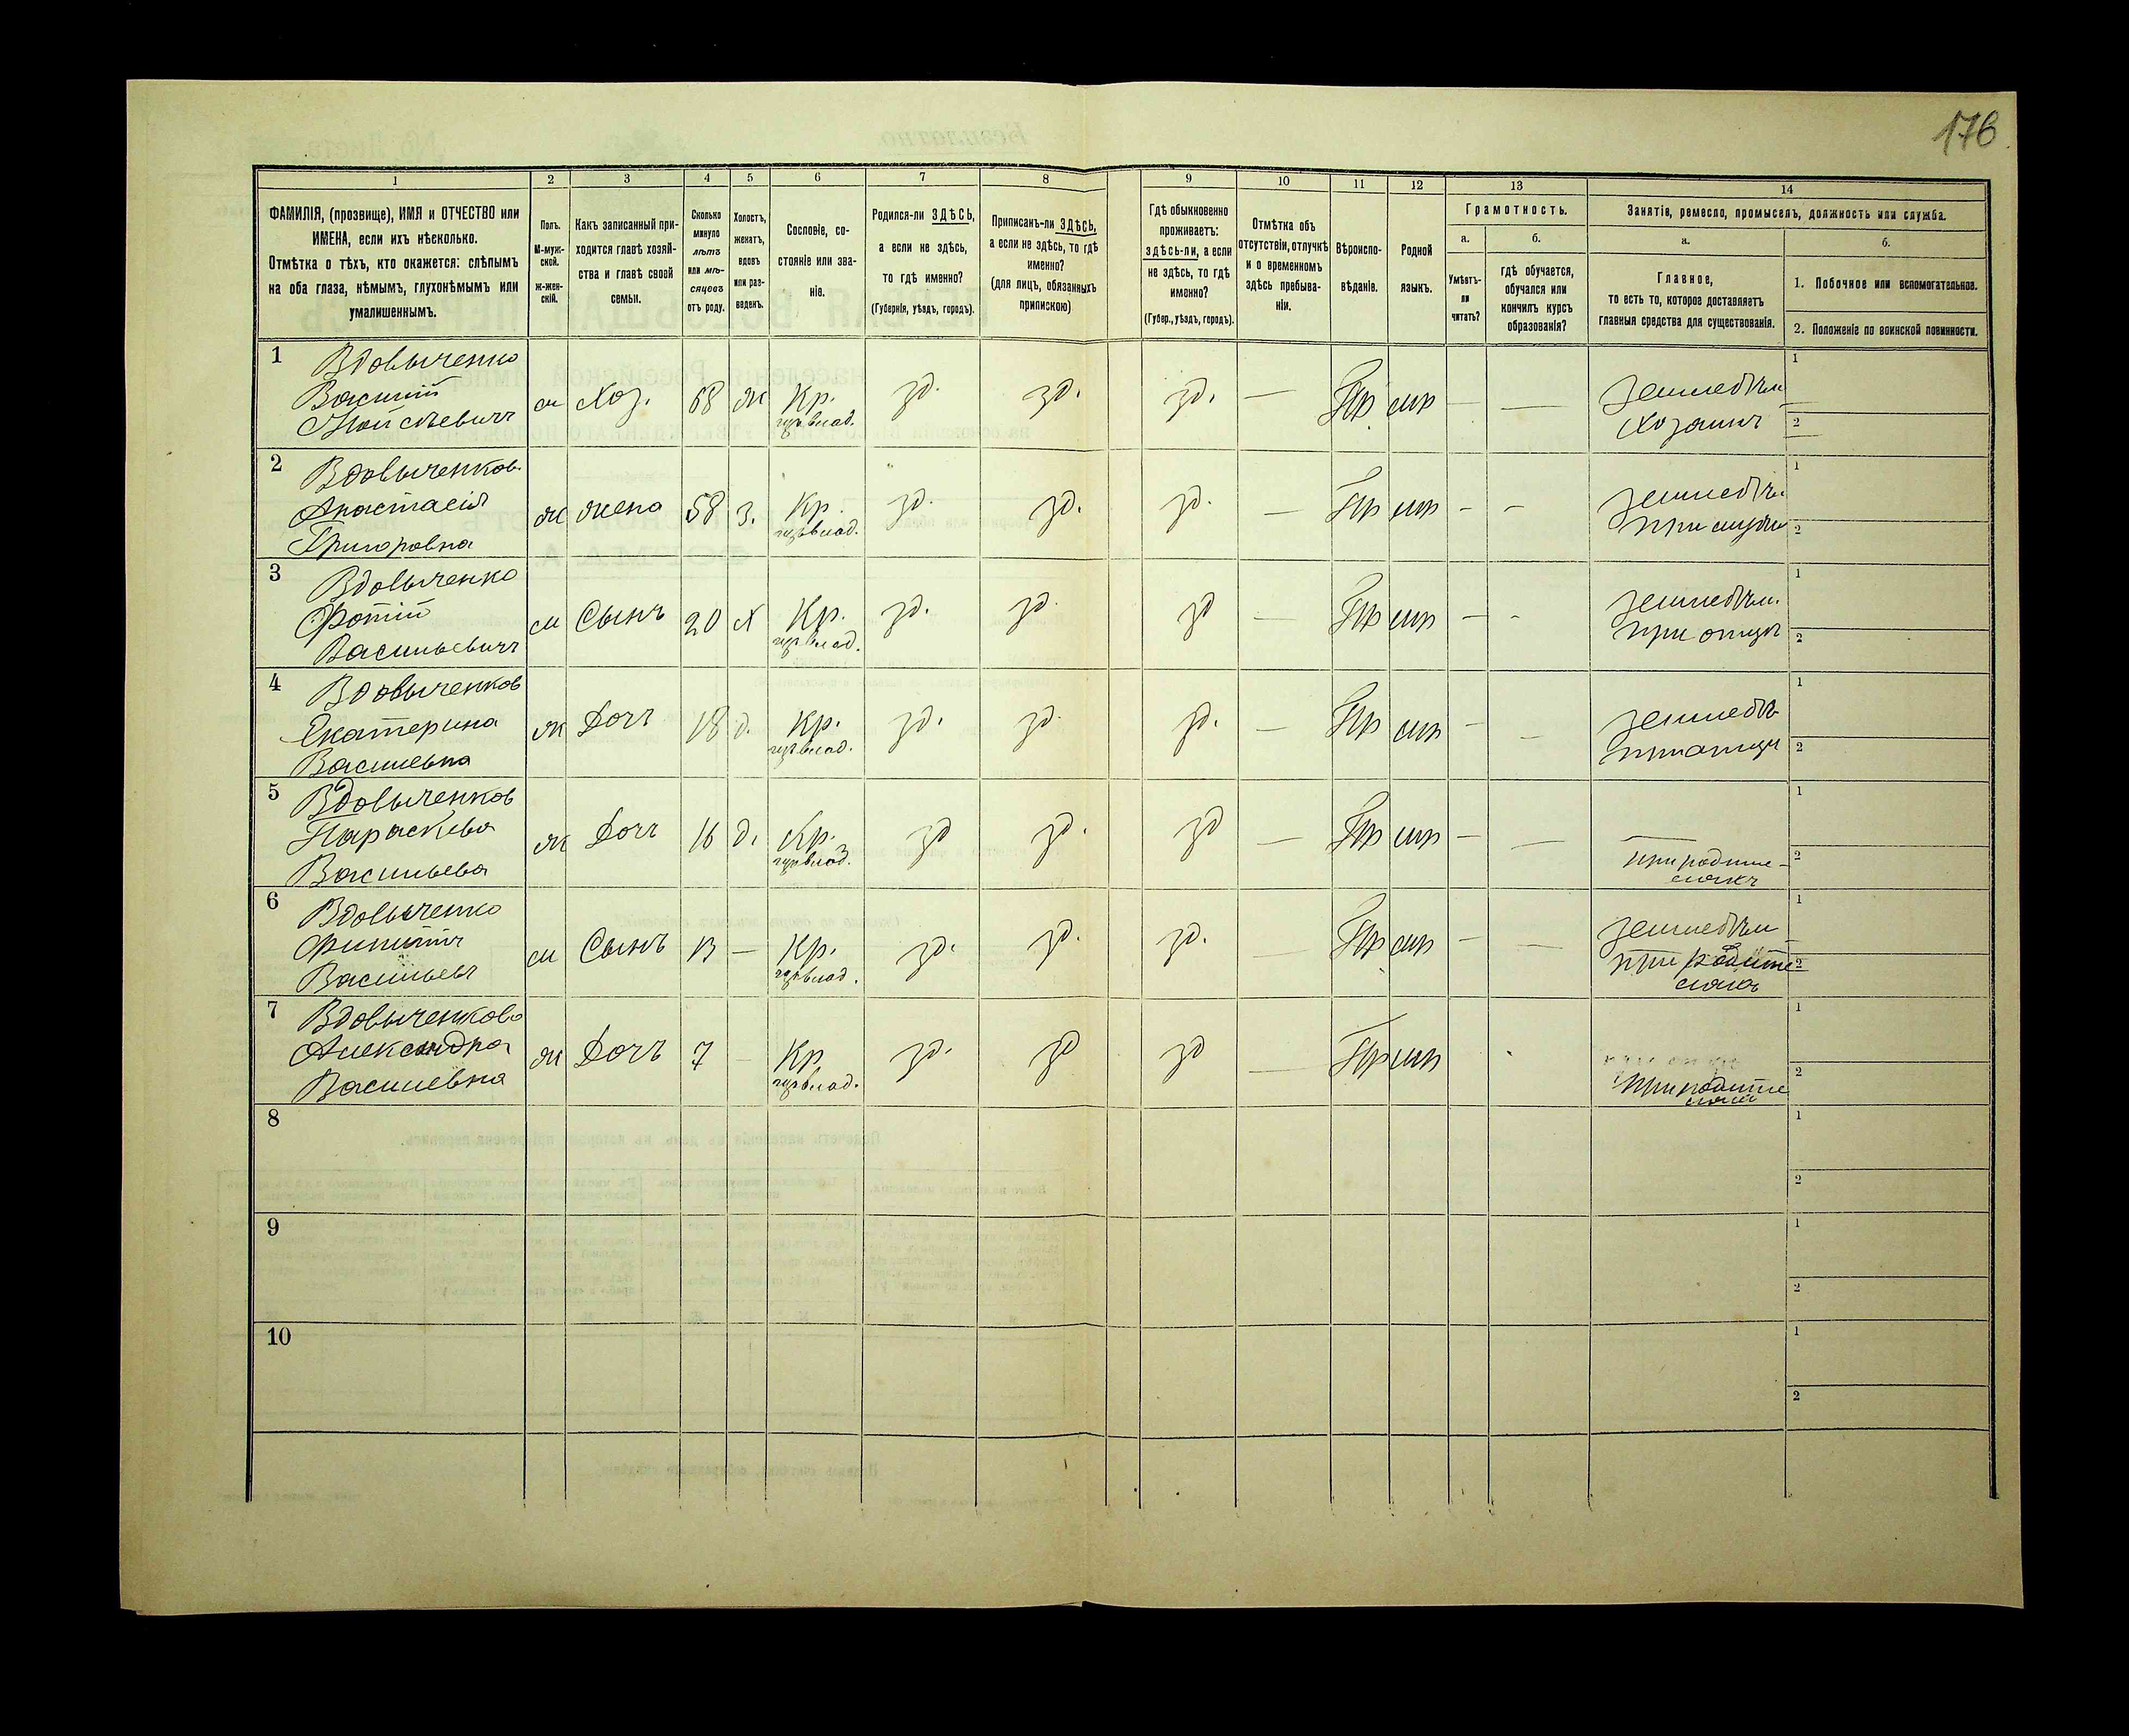 176
1 2 3 4 5 6 7 8 9 10 11 12 13 14
ФАМИЛІЯ, (прозвище), ИМЯ и ОТЧЕСТВО или
ИМЕНА, если ихъ нѣсколько.
Отмѣтка о тѣхъ, кто окажется: слѣпымъ
на оба глаза, нѣмымъ, глухонѣмымъ или
умалишеннымъ.
Полъ.
М-муж-
ской.
Ж-жен-
скій.
Какъ записанный при-
ходится главѣ хозяй-
ства и главѣ своей
семьи.
Сколько
минуло
лѣтъ
или мѣ-
сяцовъ
отъ роду.
Холостъ,
женатъ,
вдовъ
или раз-
веденъ.
Сословіе, со-
стояніе или зва-
ніе.
Родился-ли ЗДѢСЬ,
а если не здѣсь,
то гдѣ именно?
(Губернія, уѣздъ, городъ).
Приписанъ-ли ЗДѢСЬ,
а если не здѣсь, то гдѣ
именно?
(для лицъ, обязанныхъ
припискою)
Гдѣ обыкновенно
проживаетъ:
здѣсь-ли, а если
не здѣсь, то гдѣ
именно?
(Губер., уѣздъ, городъ).
Отмѣтка объ
отсутствіи, отлучкѣ
и о временномъ
здѣсь пребыва-
ніи.
Вѣроиспо-
вѣданіе.
Родной
языкъ.
Грамотность.
а.
Умѣетъ-
ли
читать?
б.
гдѣ обучается,
обучался или
кончилъ курсъ
образованія?
Занятіе, ремесло, промыселъ, должность или служба.
а.
Главное,
то есть то, которое доставляетъ
главныя средства для существованія.
б.
1. Побочное или вспомогательное.
2. Положеніе по воинской повинности.
1 Вдовыченко
Василій
м Хоз. 68 Ж Кр. зд. зд. зд. — Пр мр — — земледѣл
хозяинъ
1
2
2 Вдовыченков
Анастасія
Григоровна
ж жена 58 З. Кр. зд. зд. зд. — Пр мр - - земледѣл
при мужи
1
2
3 Вдовыченко
Фотій
Васильевичъ
м Сынъ 20 Х Кр. зд. зд. зд — Пр мр — - земледѣл.
при отцѣ
1
2
4 Вдовыченков
Екатерина
Василевна
ж Дочъ 18 д. Кр. зд. зд. зд. — Пр мр — — земледѣ
при отцѣ
1
2
5 Вдовыченков
Параскева
Васильева
ж Дочъ 16 д. Кр. зд зд. зд — Пр мр — —
при родите-
ляхъ
1
2
6 Вдовыченко
Филипъ
Васильевъ
м Сынъ 13 — Кр. зд. зд. зд. — Пр мр — — земледѣл
при родите
ляхъ
1
2
7 Вдовыченкова
Александра
Василевна
ж Дочъ 7 — Кр зд. зд зд — Пр мр -
при родите
ляхъ
1
2
8
1
2
9
1
2
10
1
2